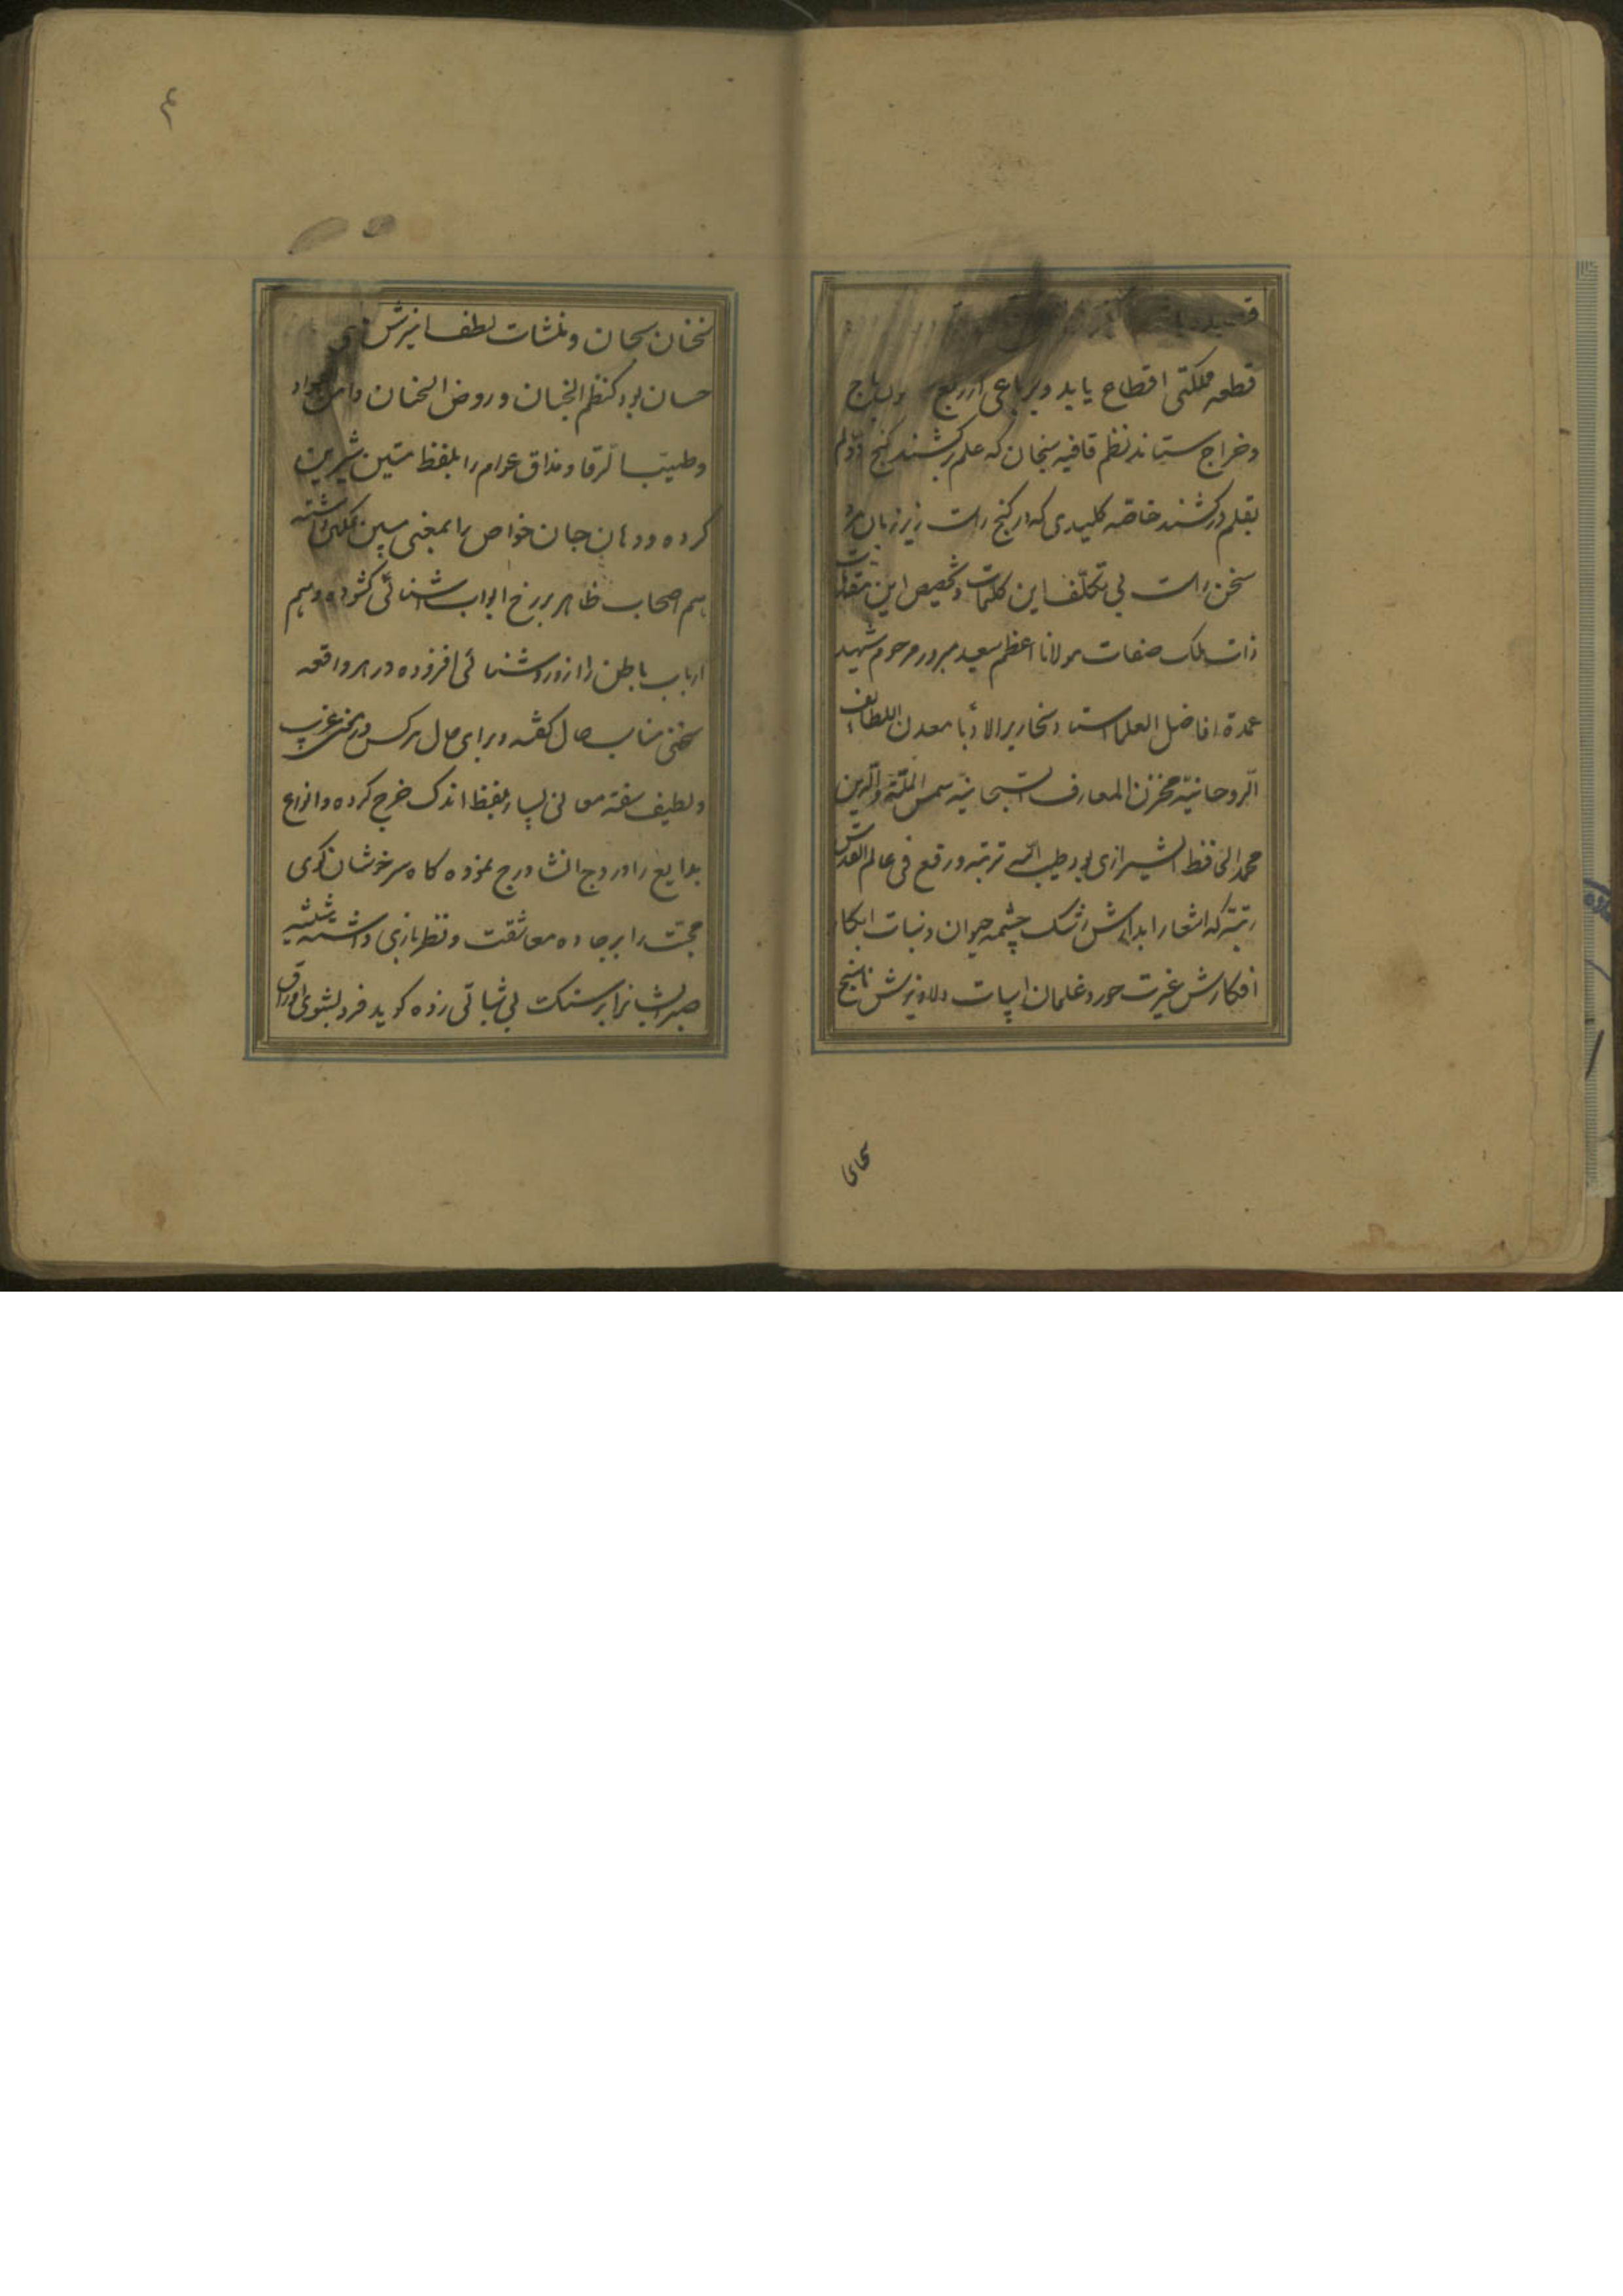 قطعه مملکتی اقطاع یابد و برباعی از ربع
و خراج ستاند نظم قافیه سنجان که علم برکشند گنج دو
بقلم درکشند خاصه کلیدی که در گنج راست زیر زبان مرد
سخن راست بی تکلف این کلمات و تخصیص این مقدمات
ذات ملک صفات مولانا اعظم سعید مبرور مرحوم شهید
عمدة افاضل العلما استاد نخاریر الادبا معدن اللطایف
الروحانیة مخزن المعارف السبحانیه شمس الملة والدین
محمد الحافظ الشیرازی بود طیب الله تربته و رفع فی عالم القدس
رتبته که اشعار ابدارش رشک چشمه حیوان و نبات ابکار
افکارش غیرت حور و غلمان ابیات دلاویزش ناسخ
سخنان سحبان و منشات لطف امیزش
حسان بود کنظم الجمان و روض الجنان و امن
و طیب الرقاد مذاق عوام را بلفظ متین شیرین
کرده و دهان جان خواص را بمعنی مبین نمکین داشته
هم اصحاب ظاهر برخ ابواب اشنائی کشوده و هم
ارباب باطن را از و روشنائی افزوده در هر واقعه
سخنی مناسب حال گفته و برای حال هرکس در معنی غریب
و لطیف سفته معانی بسیار بلفظ اندک خرج کرده و انواع
بدایع را در درج انشا درج نموده کاه سرخوشان کوی
محبت را بر جاده معاشقت و نظربازی داشته شیشه
صبر ایشانرا بر سنگ بی ثباتی زده کوید فرد بشوی اوراق